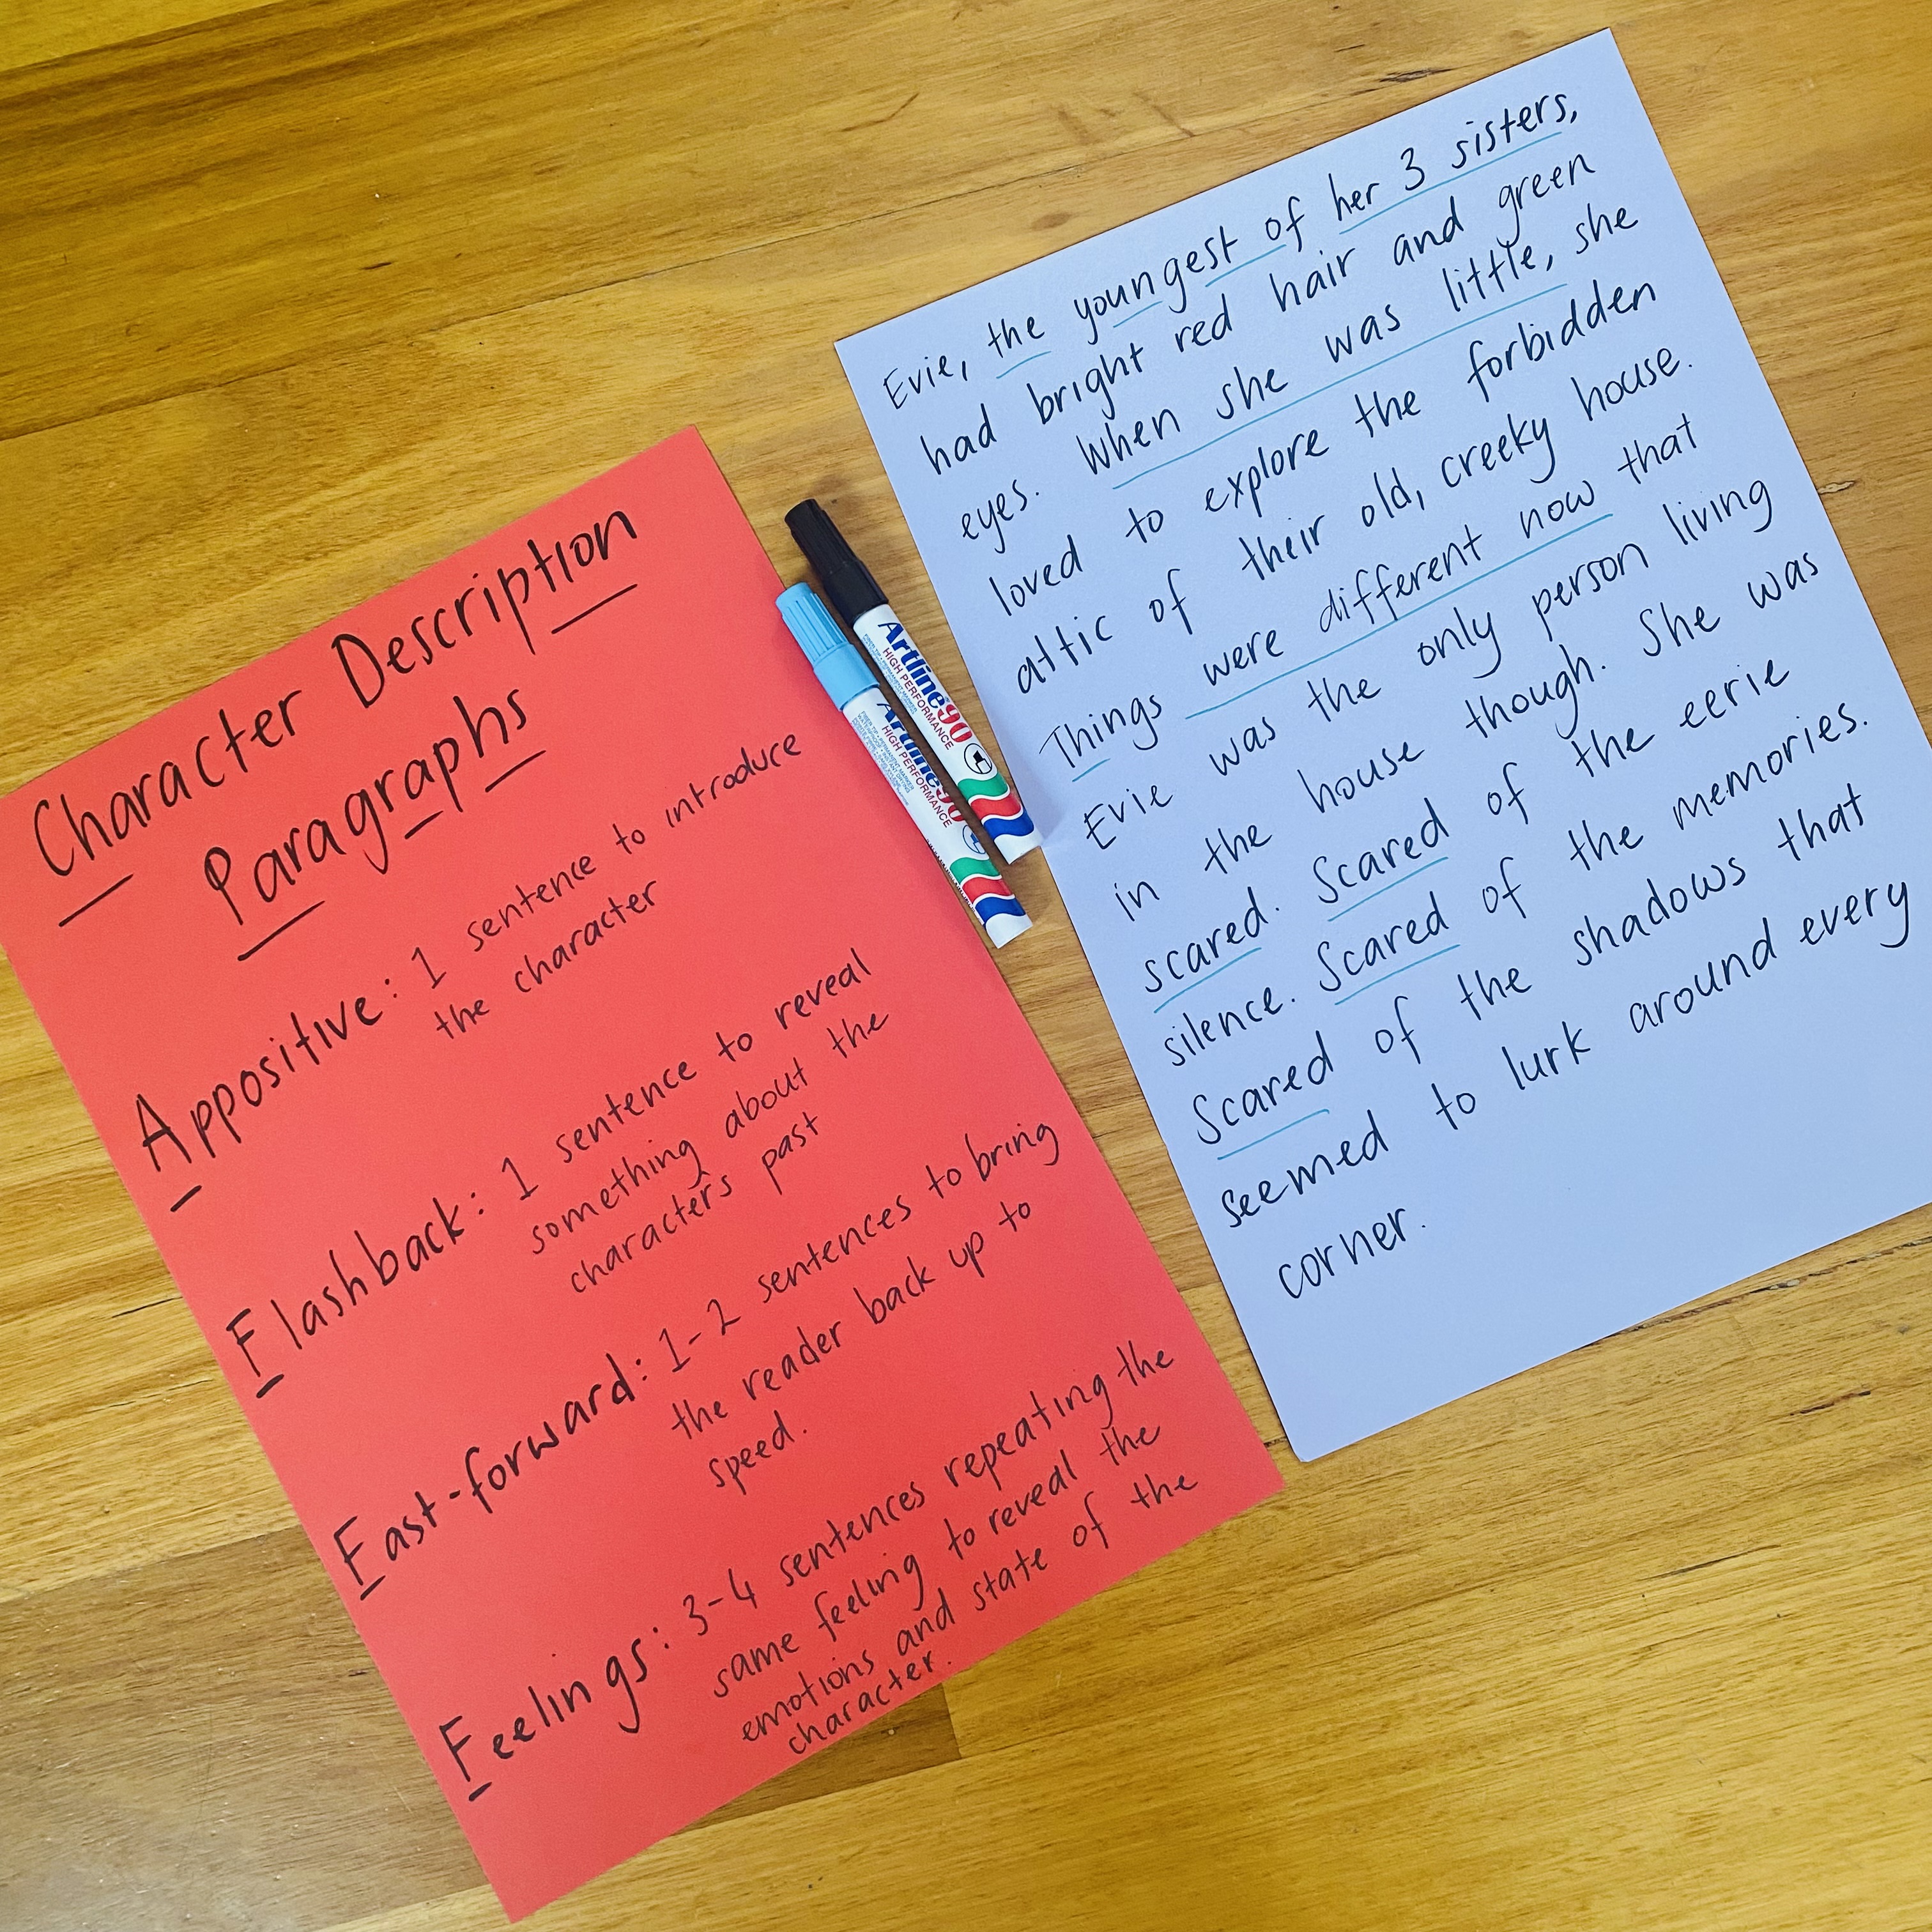 Character Description
Paragraphs
Appositive: 1 sentence to introduce
the character
Flashback: 1 sentence to reveal
something about the
characters past
Fast-forward: 1-2 sentences to bring
the reader back up to
speed.
Feelings: 3-4 sentences repeating the
same feeling to reveal the
emotions and state of the
character.
Artline 90
HIGH PERFORMANCE
Artline 90
HIGH PERFORMANCE
Evie, the youngest of her 3 sisters,
had bright red hair and green
eyes. When she was little, she
loved to explore the forbidden
attic of their old, creeky house.
Things were different now that
Evie was the only person living
in the house though. She was
scared. Scared of the eerie
silence. Scared of the memories.
Scared of the shadows that
seemed to lurk around every
corner.